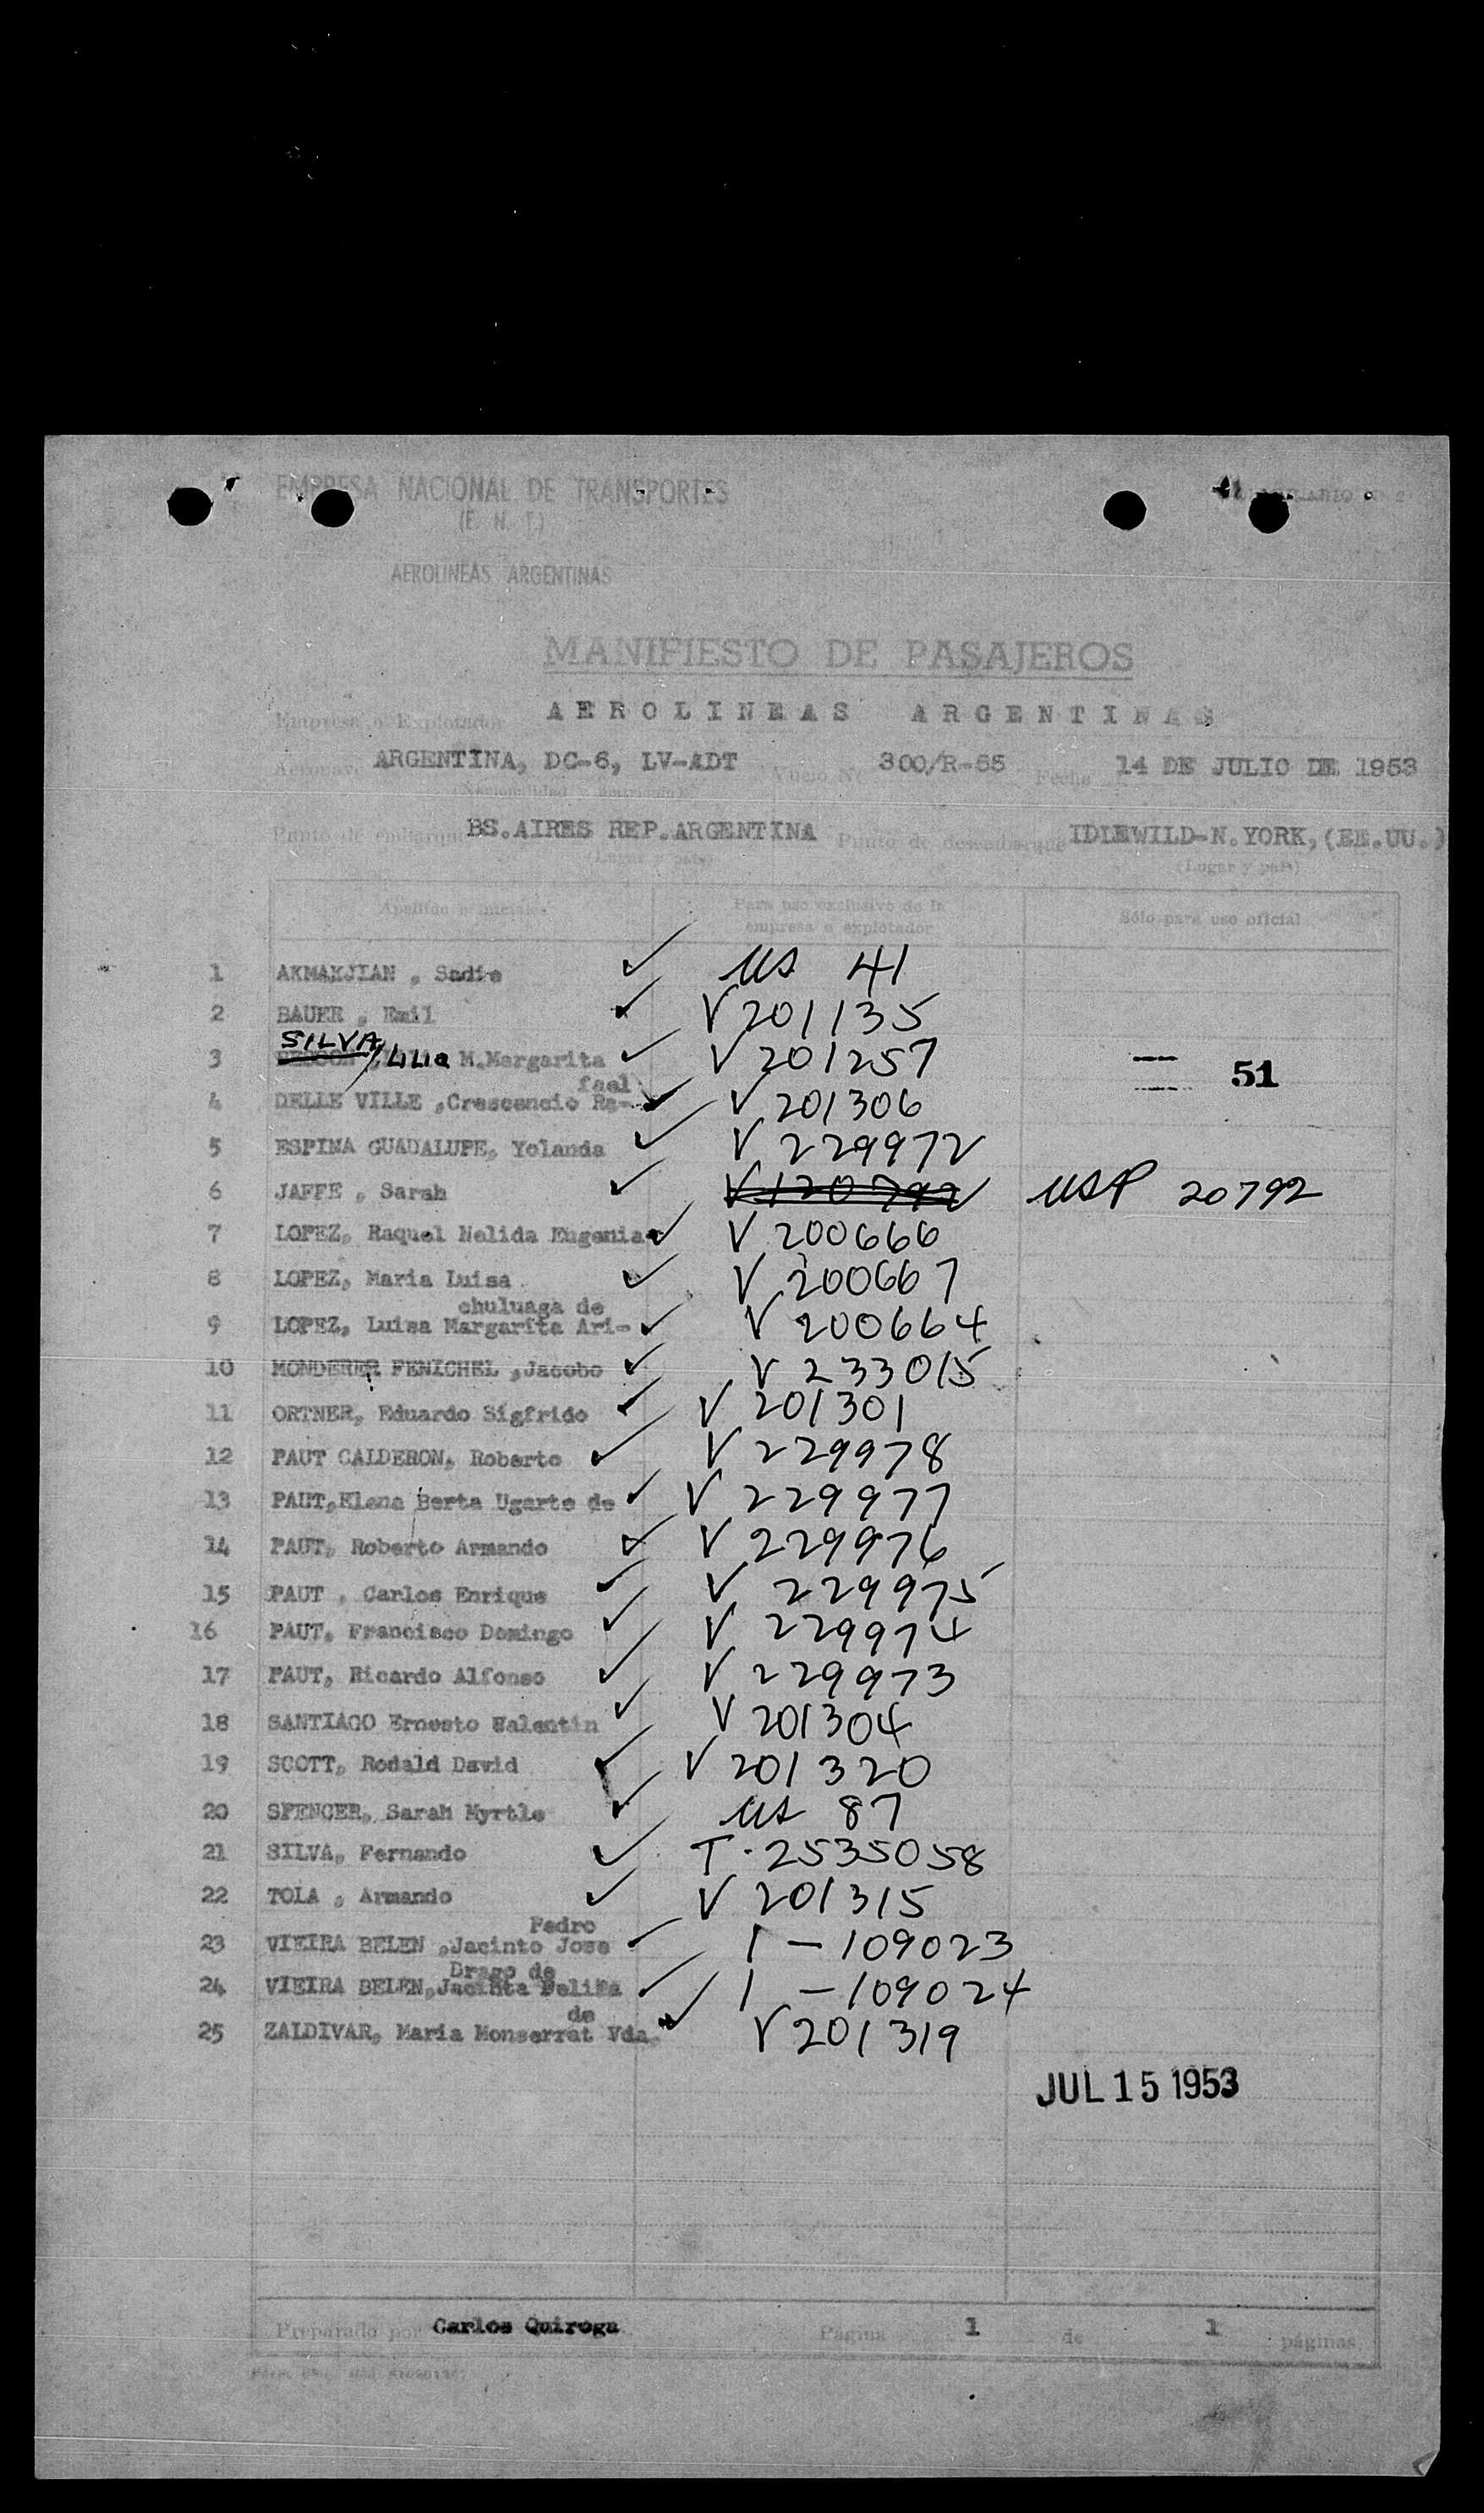 EMPRESA NACIONAL DE TRANSPORTES
(E. N. T.)
AEROLINEAS ARGENTINAS
MANIFIESTO DE PASAJEROS
Empresa o Explotador AEROLINEAS ARGENTINAS
Aeronave ARGENTINA, DC-6, LV-ADT Vuelo Nº 300/R-55 Fecha 14 DE JULIO DE 1953
(Nacionalidad y matrícula)
Punto de embarque BS.AIRES REP.ARGENTINA Punto de desembarque IDLEWILD-N.YORK,(EE.UU.)
(Lugar y país) (Lugar y país)
Apellido e iniciales Para uso exclusivo de la empresa o explotador Sólo para uso oficial
1 AKMAKJIAN , Sadie ✓ US 41
2 BAUER , Emil ✓ V 201135
SILVA
3 / Lila M.Margarita ✓ V 201257 51
fael
4 DELLE VILLE ,Crescencio Ra- ✓ V 201306
5 ESPINA GUADALUPE, Yolanda ✓ V 229972
6 JAFFE , Sarah ✓ V 120792 USP 20792
7 LOPEZ, Raquel Nelida Eugenia ✓ V 200666
8 LOPEZ, Maria Luisa ✓ V 200667
chuluaga de
9 LOPEZ, Luisa Margarita Ari- ✓ V 200664
10 MONDERER FENICHEL ,Jacobo ✓ V 233015
11 ORTNER, Eduardo Sigfrido ✓ V 201301
12 PAUT CALDERON, Roberto ✓ V 229978
13 PAUT,Elena Berta Ugarte de ✓ V 229977
14 PAUT, Roberto Armando ✓ V 229976
15 PAUT , Carlos Enrique ✓ V 229975
16 PAUT, Francisco Domingo ✓ V 229974
17 PAUT, Ricardo Alfonso ✓ V 229973
18 SANTIAGO Ernesto Walentin ✓ V 201304
19 SCOTT, Rodald David ✓ V 201320
20 SPENCER, Sarah Myrtle ✓ US 87
21 SILVA, Fernando ✓ T-2535058
22 TOLA , Armando ✓ V 201315
Pedro
23 VIEIRA BELEN ,Jacinto Jose ✓ I-109023
Drago de
24 VIEIRA BELEN,Jacinta Delina ✓ I-109024
de
25 ZALDIVAR, Maria Monserrat Vda. ✓ V 201319
JUL 15 1953
Preparado por Carlos Quiroga Página 1 de 1 páginas